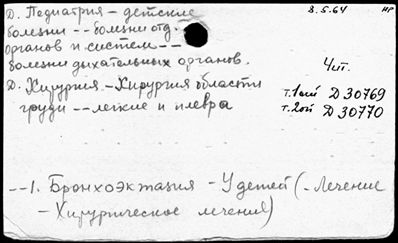 Д. Педиатрия - детские
болезни -- болезни отд.
органов и систем --
болезни дыхательных органов.
Д. Хирургия - Хирургия области
груди -- легкие и плевра
8.5.64
НР
Чит.
т. 1ый Д 30769
т. 2ой Д 30770
-- 1. Бронхоэктазия - У детей (- Лечение
- Хирургическое лечение)